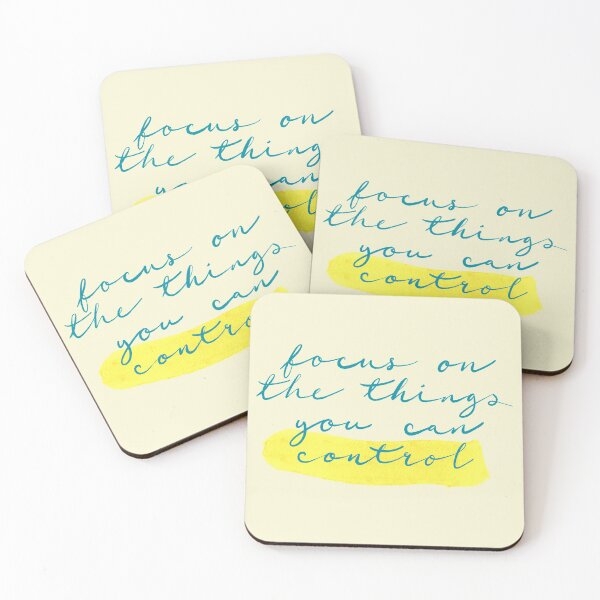 focus on
the thing
focus on
the things
you can
control
focus on
the things
you can
contro
focus on
the things
you can
control